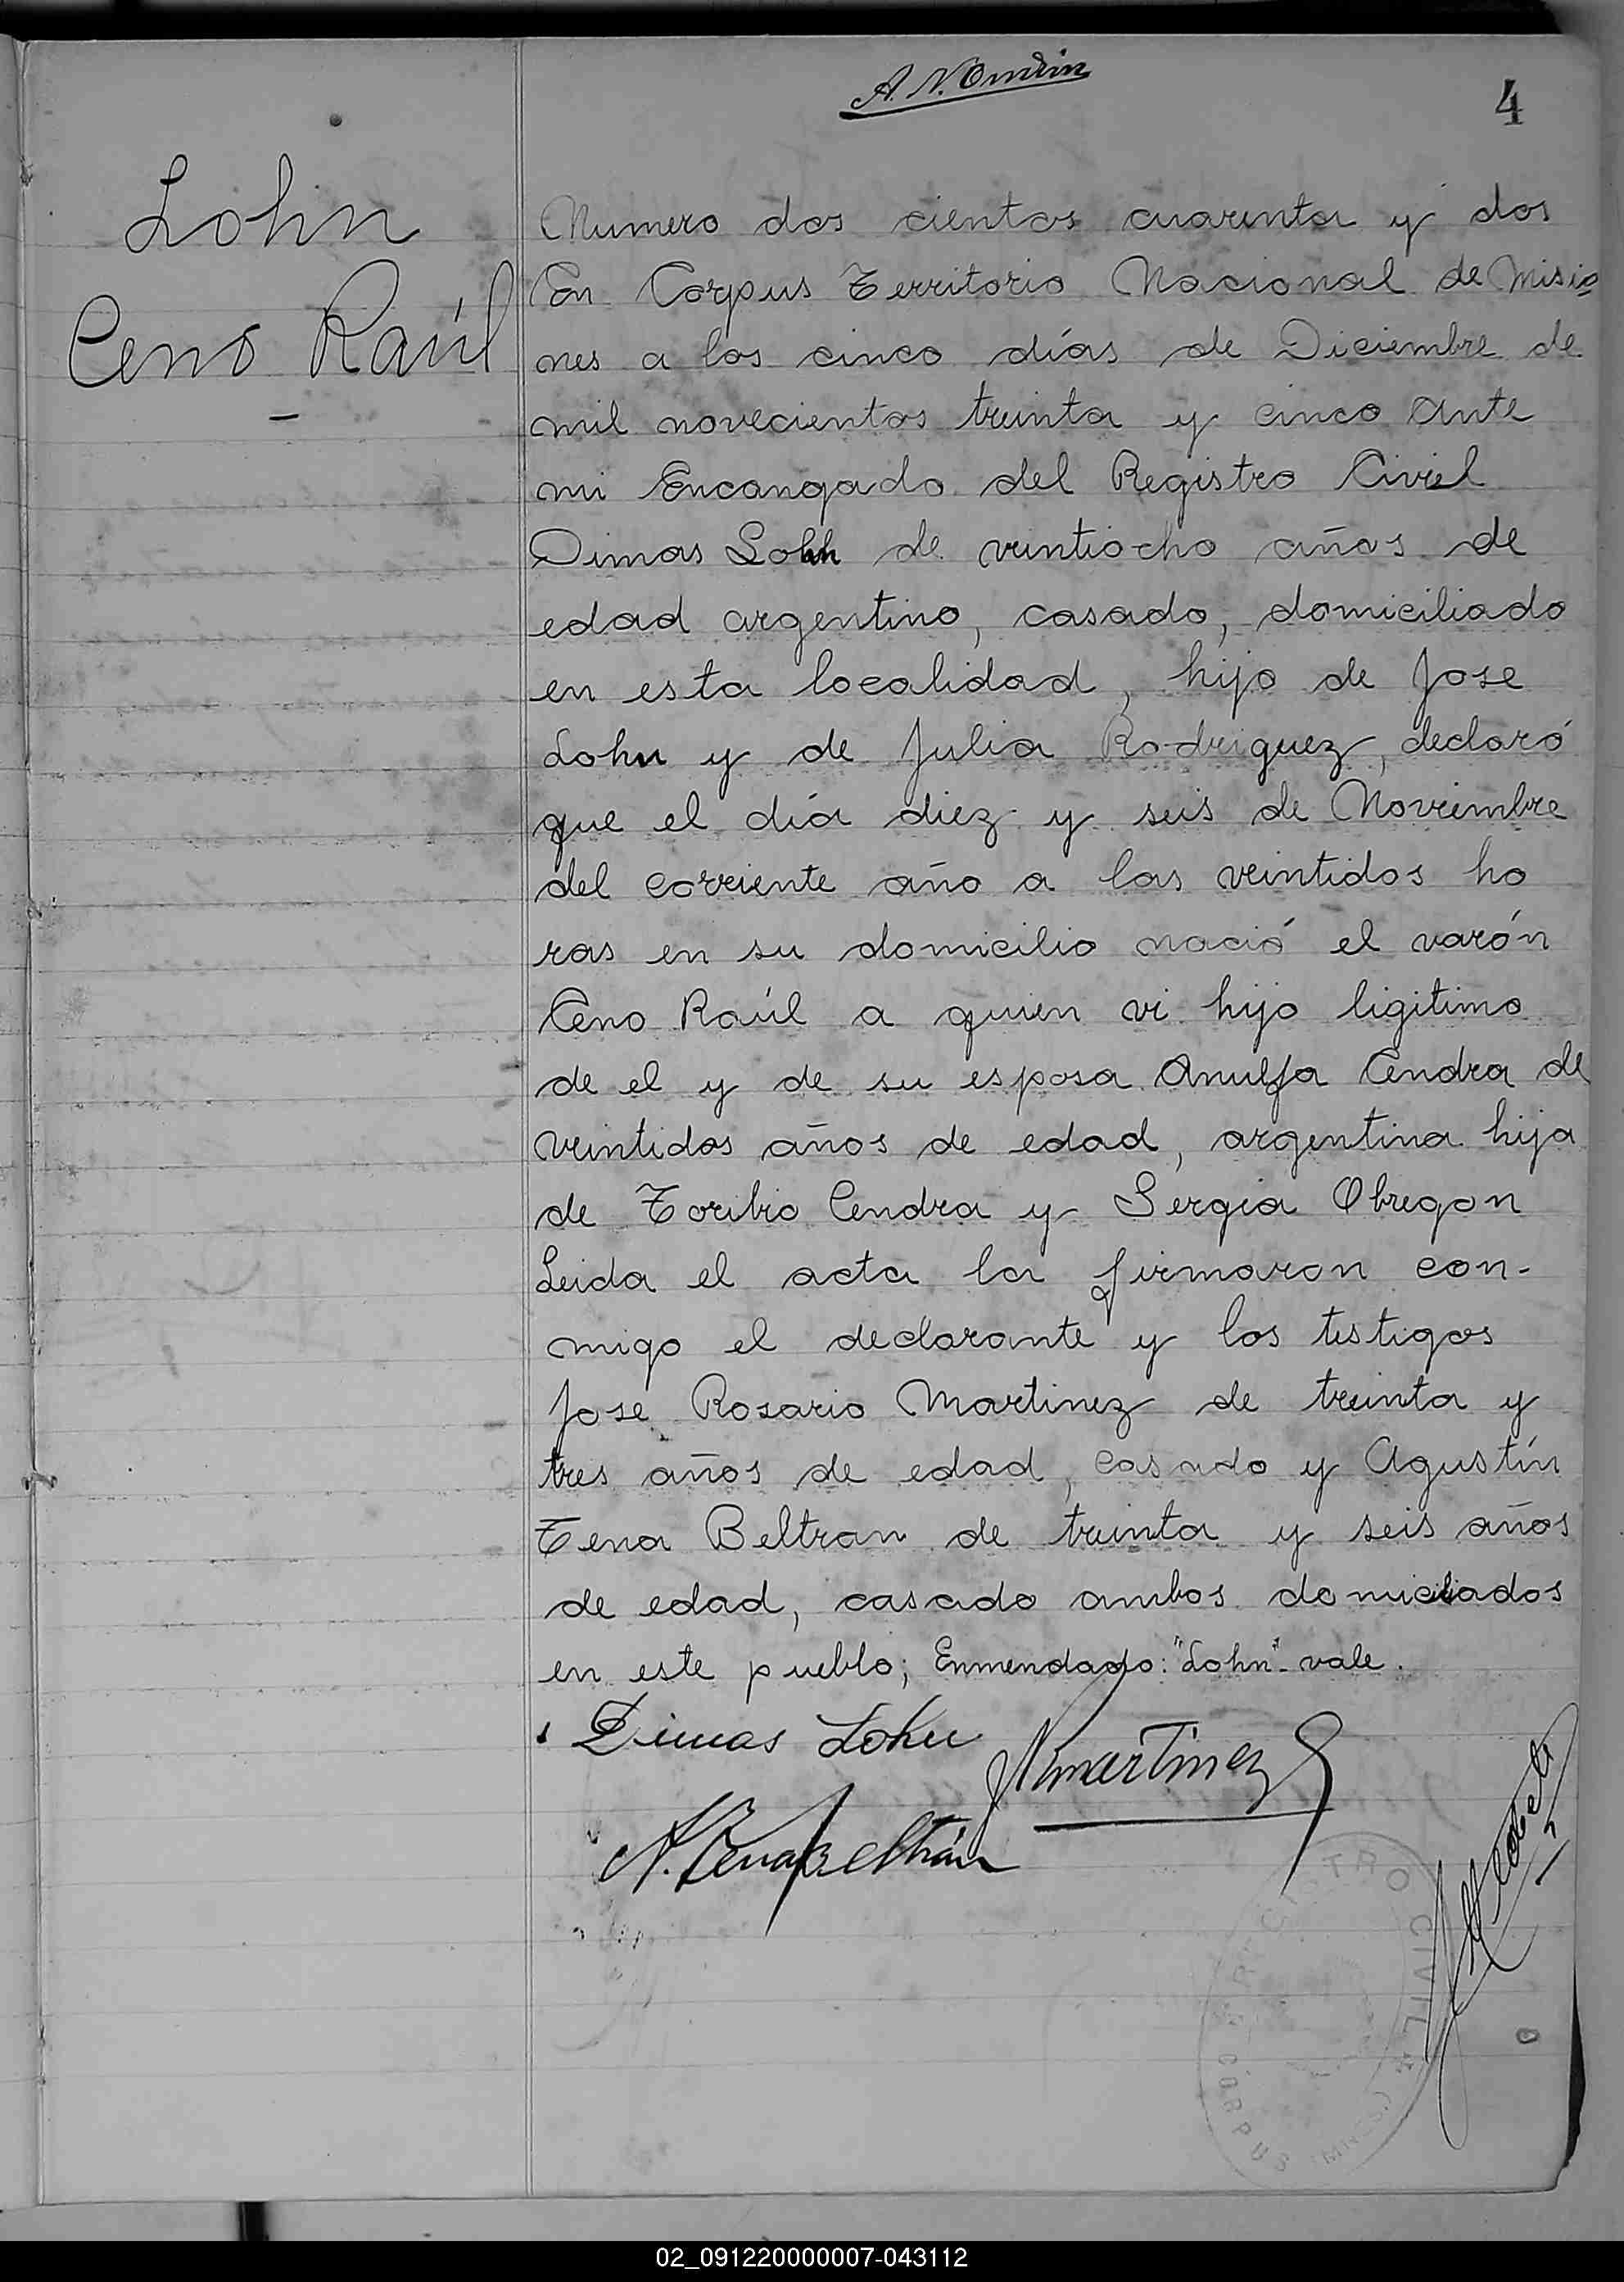 4
Lohn
Ceno Raúl
Numero dos cientos cuarenta y dos
En Corpus Territorio Nacional de Misio
nes a los cinco días de Diciembre de
mil novecientos treinta y cinco Ante
mi Encangado del Registro Civil
Dimas Lohn de veintiocho años de
edad argentino, casado, domiciliado
en esta localidad, hijo de Jose
Lohn y de Julia Rodriguez, declaró
que el día diez y seis de Noviembre
del corriente año a las veintidos ho
ras en su domicilio nació el varón
Ceno Raúl a quien vi hijo ligitimo
de el y de su esposa Cendra de
veintidos años de edad, argentina hija
de Toribio Cendra y Sergia Obregon
Leida el acta la firmaron con-
migo el declarante y los testigos
Jose Rosario Martinez de treinta y
tres años de edad, casado y Agustín
Tena Beltran de treinta y seis años
de edad, casado ambos domiciliados
en este pueblo; Enmendado: "Lohn" - vale.
Dimas Lohn
Martinez
A. Tena Beltrán
REGISTRO CIVIL
CORPUS
02_091220000007-043112